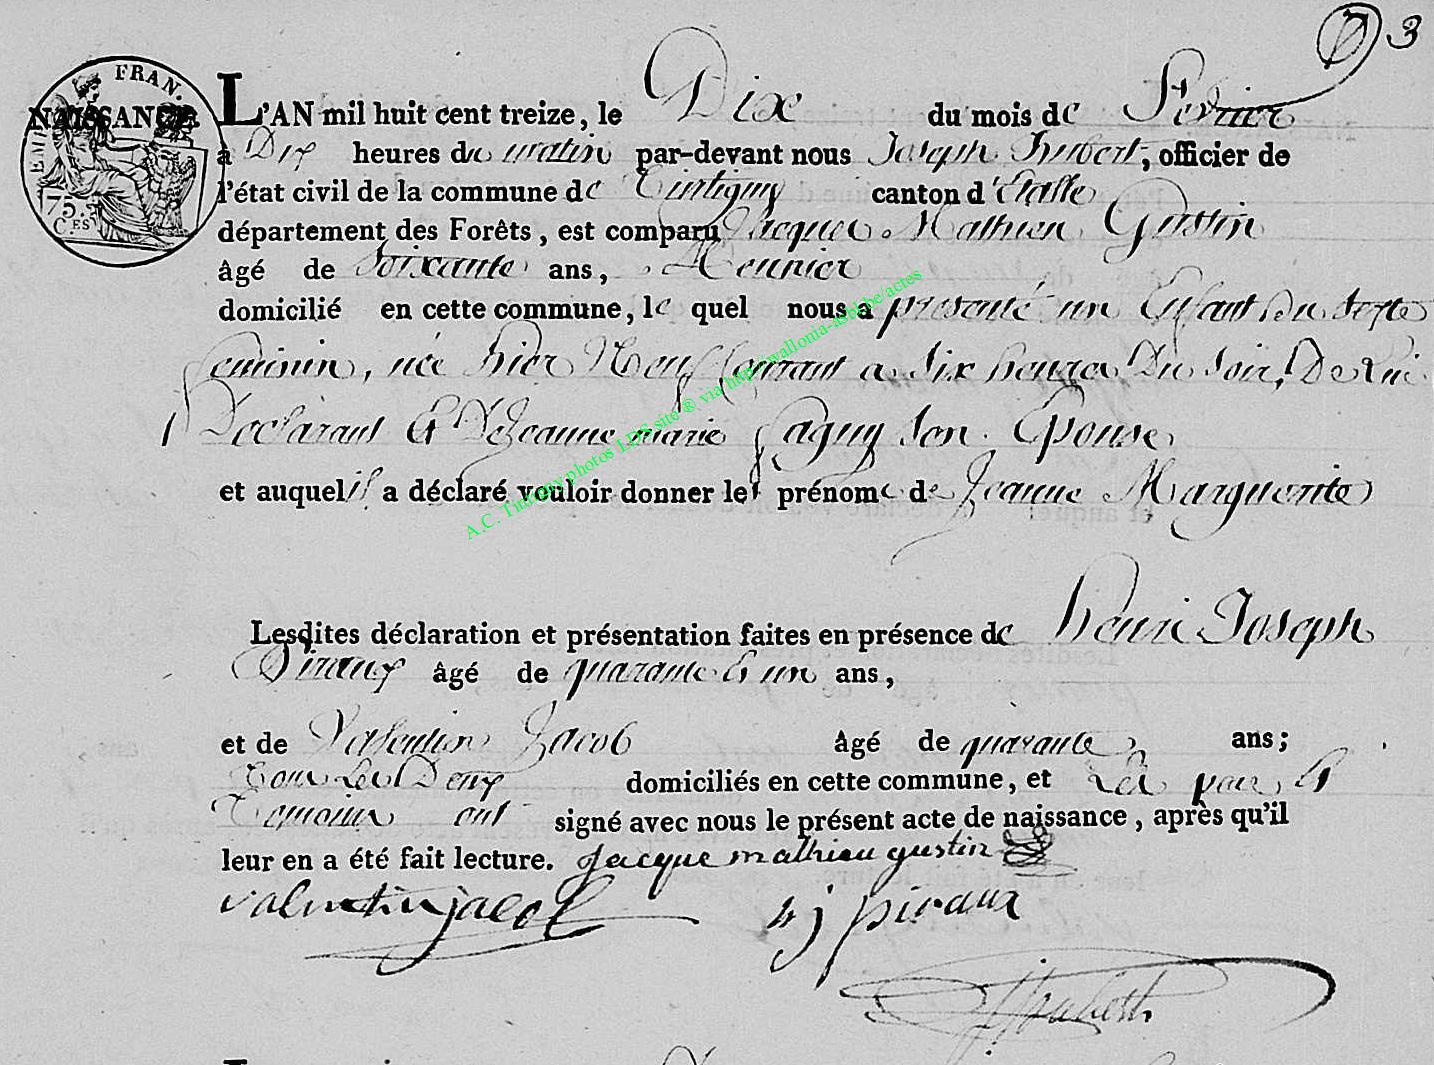 3
EMPI FRAN.
75.
CES
NAISSANCE
L'AN mil huit cent treize, le Dix du mois de Fevrier
a Dix heures du matin par-devant nous Joseph hubert, officier de
l'état civil de la commune de Tintigny canton d'Etalle
département des Forêts, est comparu Jacques Mathieu Gustin
âgé de Soixante ans, Meunier
domicilié en cette commune, le quel nous a presenté un Enfant Du Sexe
feminin, née hier Neuf Courant a Six heures Du Soir, De lui
Declarant Et De Jeanne marie fagny Son Epouse
et auquel il a déclaré vouloir donner les prénoms de Jeanne Marguerite
Lesdites déclaration et présentation faites en présence de henri Joseph
Piraux âgé de quarante Et un ans,
et de Valentin Jacob âgé de quarante ans;
Tous Les Deux domiciliés en cette commune, et Les pere Et
Temoins ont signé avec nous le présent acte de naissance, après qu'il
leur en a été fait lecture. Jacque mathieu gustin
valentin jacob hj piraux
J hubert
A.C. Tintigny photos LDS site ® via http://wallonia-asbl.be/actes